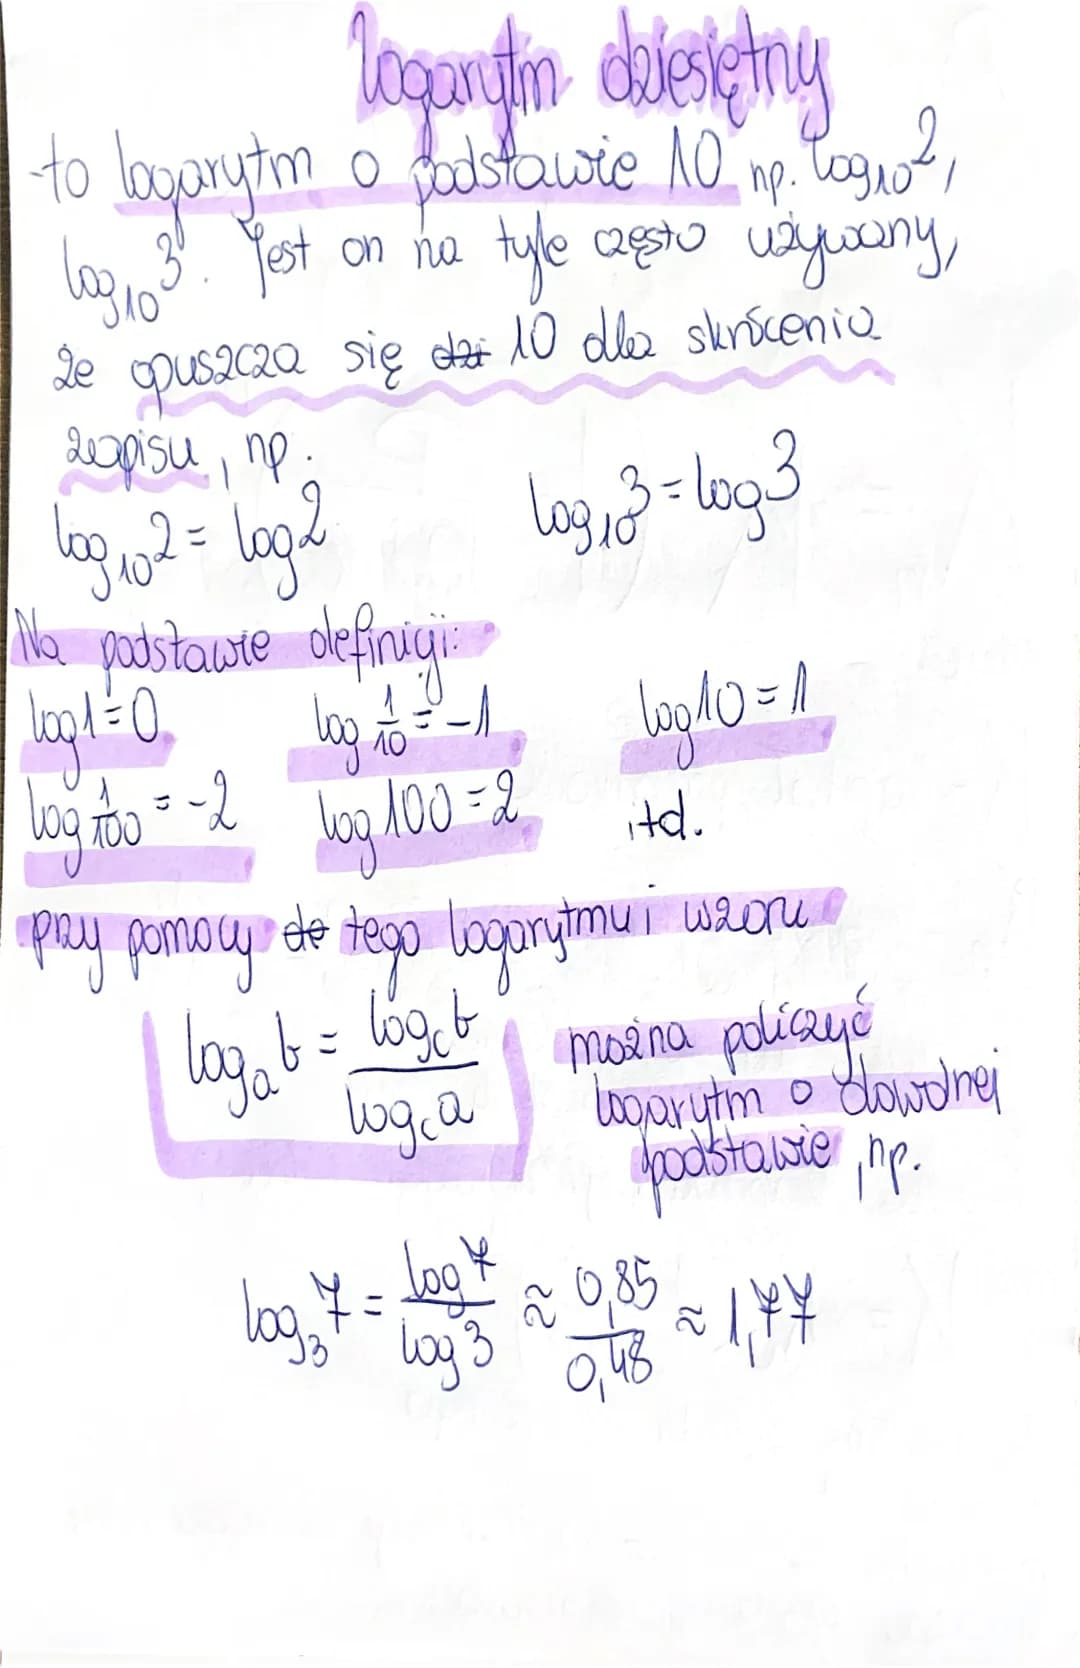 logarytm dziesiętny
-to logarytm o podstawie 10 np. log₁₀2,
log₁₀3. Jest on na tyle często używany,
że opuszcza się 10 dla skrócenia
zapisu, np.
log₁₀2 = log2 log₁₀3 = log3
Na podstawie definicji:
log1=0 log 1/10 = -1 log10 = 1
log 1/100 = -2 log100=2 itd.
przy pomocy tego logarytmu i wzoru
logₐb = log_c b / log_c a można policzyć
logarytm o dowolnej
podstawie, np.
log₃7 = log7 / log3 ≈ 0,85 / 0,48 ≈ 1,77